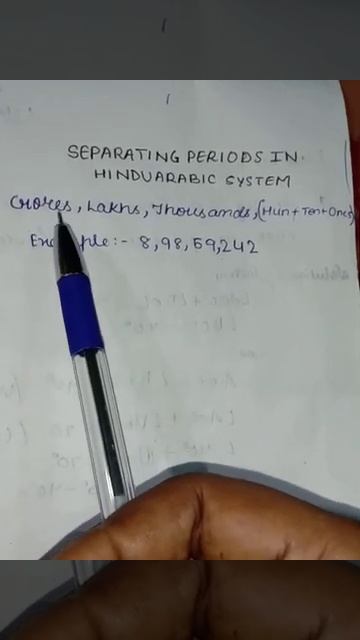 SEPARATING PERIODS IN
HINDUARABIC SYSTEM
Crores, Lakhs, Thousands, (Hun + Ten + Ones)
Example :- 8,98,59,242